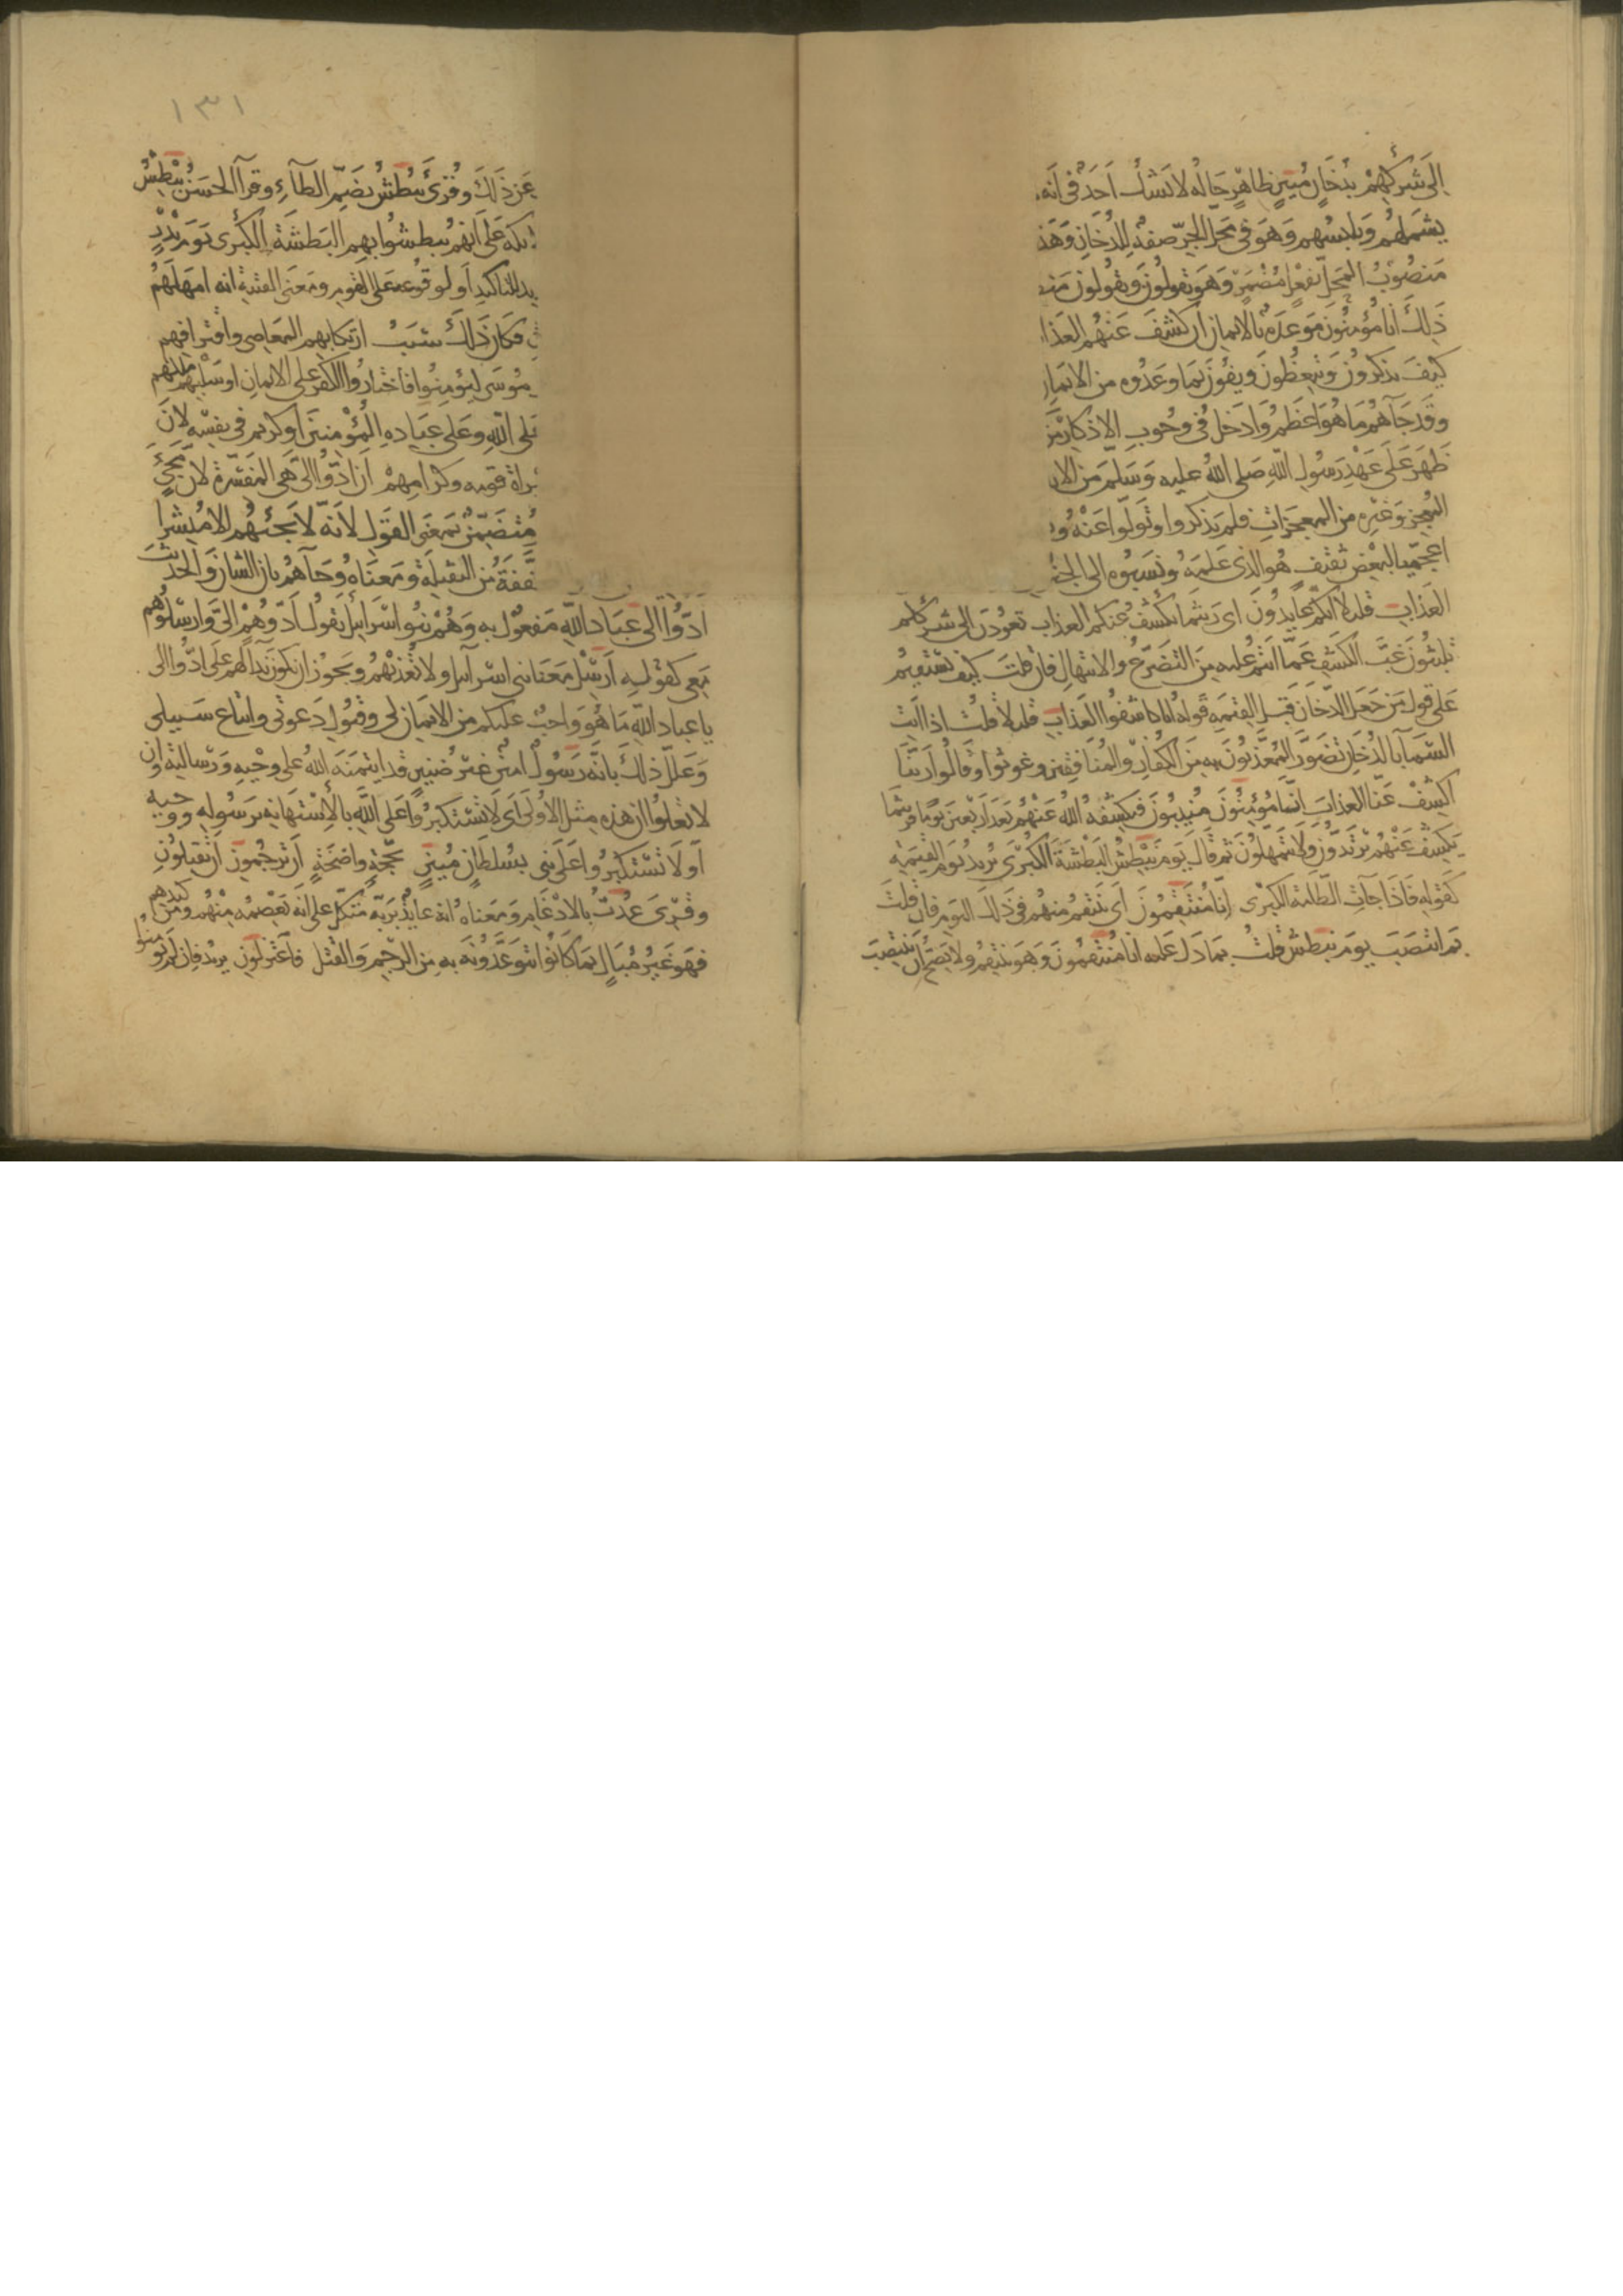 الى شركهم بدخان مبين ظاهر حاله لا يشك احد في انه
يشملهم ويلبسهم وهو في محل الجر صفة للدخان وهذ
منصوب المحل بفعل مضمر وهو يقولون ويقولون منصـ
ذلك انا مؤمنون موعدة بالايمان ان كشف عنهم العذا
كيف يذكرون ويتعظون ويفون بما وعدوه من الايمان
وقد جاهم ما هو اعظم وادخل في وجوب الاذكار من
ظهر على عهد رسول الله صلى الله عليه وسلم من الا
المعجز وغيره من المعجزات فلم يذكروا وتولوا عنه و
اعجميا لبعض ثقيف هو الذي علمه ونسبوه الى الجنو
العذاب قليلا انكم عايدون اى ريثما نكشف عنكم العذاب تعودون الى شرككم
تلبثون غب الكشف عما انتم عليه من التضرع والابتهال فان قلت كيف يستقيم
على قول من جعل الدخان قبل القيمة قوله انا كاشفوا العذاب قليلا قلت اذا اتت
السمآ بالدخان تضور المعذبون به من الكفار والمنافقين وغوثوا وقالوا ربنا
اكشف عنا العذاب انا مؤمنون منيبون فيكشفه الله عنهم بعد اربعين يوما فريثما
يكشف عنهم يرتدون ولا يتمهلون ثم قال يوم نبطش البطشة الكبرى يريد يوم القيمة
كقوله فاذا جآت الطامة الكبرى انا منتقمون اى ننتقم منهم في ذلك اليوم فان قلت
بم انتصب يوم نبطش قلت بما دل عليه انا منتقمون وهو ننتقم ولا يصح ان ينتصب
١٣١
عن ذلك وقرئ نبطش بضم الطآء وقرأ الحسن نبطش
ئكة على انهم يبطشوا بهم البطشة الكبرى يوم نديد
يد للتاكيد او لوقوعه على القوم ومعنى الفتنة انه امهلهم
ق فكان ذلك سبب ارتكابهم المعاصي واقترافهم
موسى ليؤمنوا فاختاروا الكفر على الايمان او سلبهم ملكهم
على الله وعلى عباده المؤمنين او كريم في نفسه لان
سراة قومه وكرامهم ان ادوا الى هي المفسرة لان مجئ
متضمن بمعنى القول لانه لا يجئهم الا مبشرا
خففة من الثقيلة ومعناه وجآهم بان الشان والحديث
ادوا الى عباد الله مفعول به وهم بنو اسرائيل يقول ادوهم الى وارسلوهم
معي كقوله ارسل معنا بني اسرآئيل ولا تعذبهم ويجوز ان يكون ندآ لهم على ادوا الى
يا عباد الله ما هو واجب عليكم من الايمان لى وقبول دعوتى واتباع سبيلى
وعلل ذلك بانه رسول امين غير ضنين قد ايتمنه الله على وحيه ورسالته وان
لا تعلوا ان هذه مثل الاولى اى لا تستكبروا على الله بالاستهانة برسوله ووحيه
او لا تستكبروا على نبي بسلطان مبين بحجة واضحة ان ترجمون ان تقتلون
وقرئ عدت بالادغام ومعناه انه عايذ بربه متكل على انه يعصمه منهم ومن كيدهم
فهو غير مبال بما كانوا يتوعدونه به من الرجم والقتل فاعتزلون يريد فان لم تؤمنوا